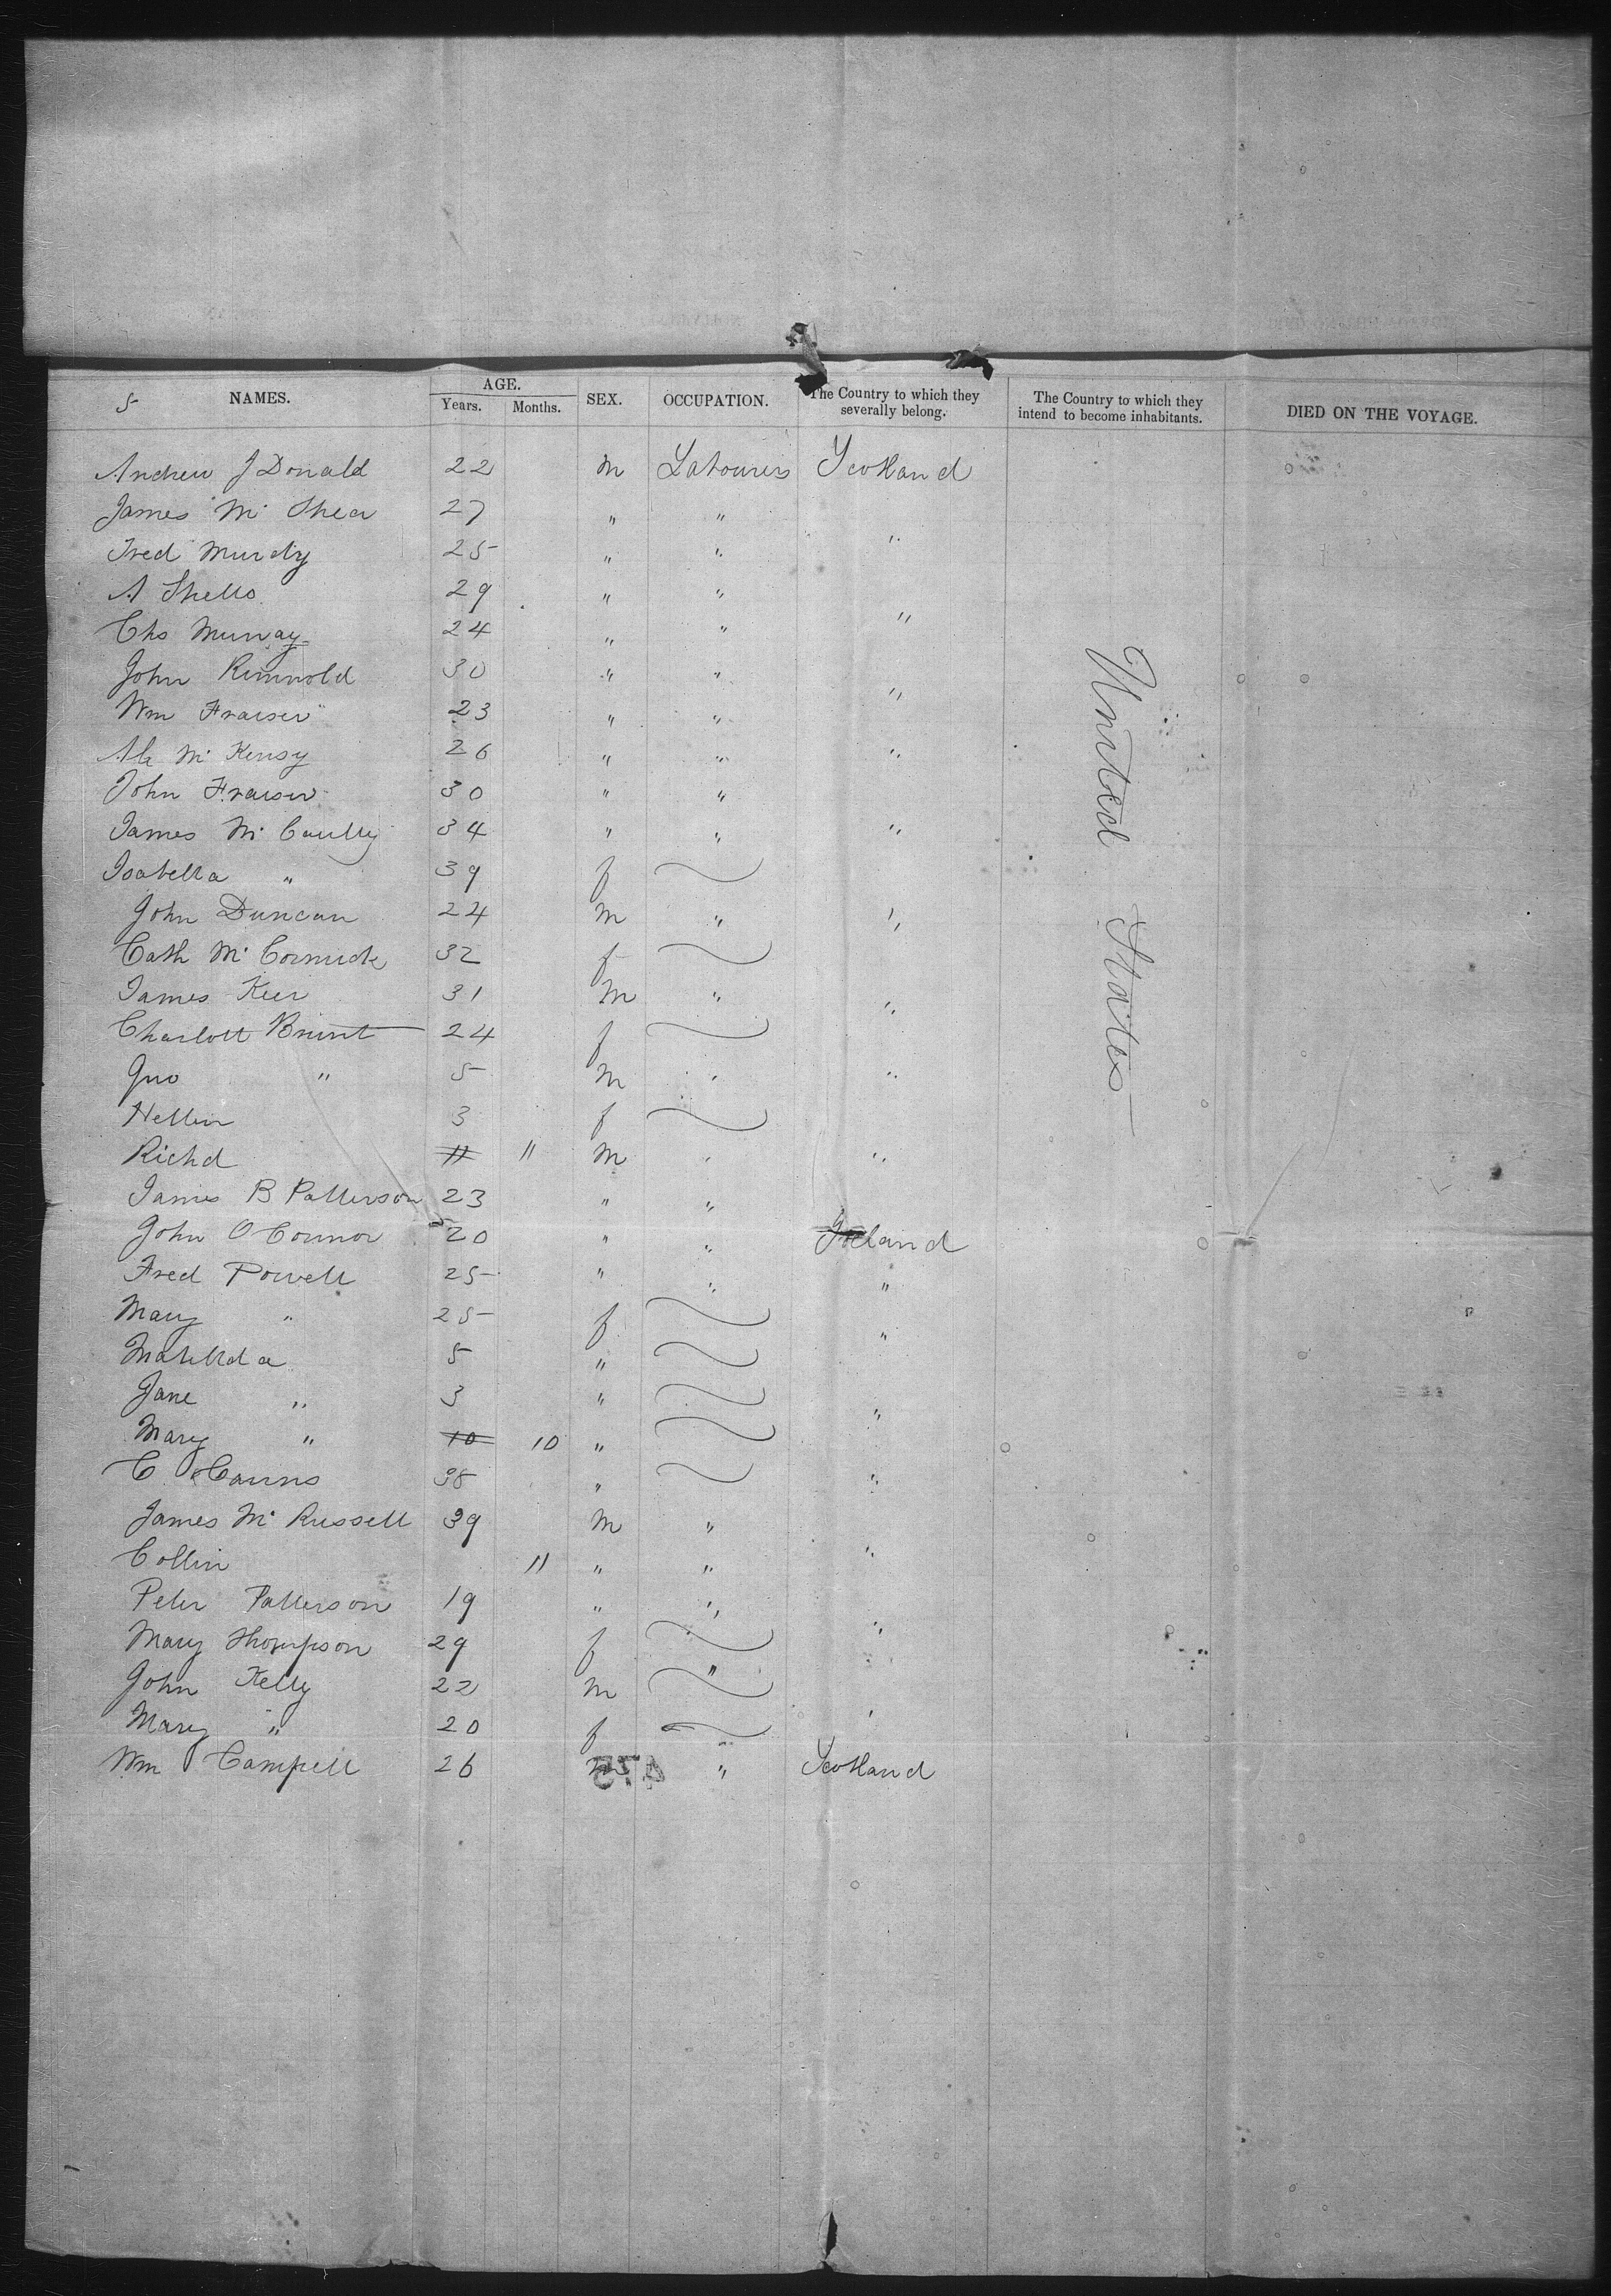 5 NAMES. AGE. Years. Months. SEX. OCCUPATION. The Country to which they severally belong. The Country to which they intend to become inhabitants. DIED ON THE VOYAGE.
Andrew J Donald 22 m Labourers Scotland
James Mc Shea 27 " "
Fred Murdy 25 " " "
A Shells 29 " "
Chs Murray 24 " " "
John 30 " " "
Wm Fraiser 23 " "
Mc Kensy 26 " " "
John Fraiser 30 " "
James Mc Caully 34 " " "
Isabella " 39 f
John Duncan 24 m " "
Cath Mc Cormick 32 f
James Keer 31 m " "
Charlott Brunt 24 f
Jno " 5 m " "
Hellen 3 f
Richd 11 11 m " "
James B Patterson 23 " "
John O Connor 20 " " Ireland
Fred Powell 25 " " "
Mary " 25 f "
Matillda 5 "
Jane " 3 " "
Mary " 10 10 "
C Cairns 38 " "
James Mc Russell 39 m "
Collin 11 " " "
Peter Patterson 19 " "
Mary Thompson 29 f "
John Kelly 22 m "
Mary " 20 f "
Wm Campell 26 m " Scotland
United States